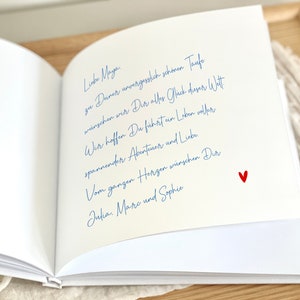 Liebe Maya,
zu Deiner unvergesslich schönen Taufe
wünschen wir Dir alles Glück dieser Welt
Wir hoffen Du führst ein Leben voller
spannender Abenteuer und Liebe
Vom ganzen Herzen wünschen Dir
Julia, Marc und Sophie